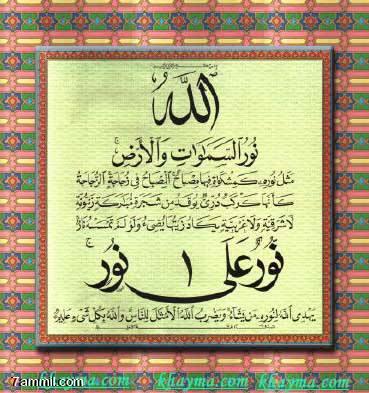 ٱللَّهُ
نُورُ السَّمَٰوَاتِ وَالْأَرْضِ ۚ
مَثَلُ نُورِهِ كَمِشْكَاةٍ فِيهَا مِصْبَاحٌ الْمِصْبَاحُ فِي زُجَاجَةٍ الزُّجَاجَةُ
كَأَنَّهَا كَوْكَبٌ دُرِّيٌّ يُوقَدُ مِنْ شَجَرَةٍ مُبَٰرَكَةٍ زَيْتُونَةٍ
لَا شَرْقِيَّةٍ وَلَا غَرْبِيَّةٍ يَكَادُ زَيْتُهَا يُضِيءُ وَلَوْ لَمْ تَمْسَسْهُ نَارٌ
نُورٌ عَلَى نُورٍ ۚ
يَهْدِي اللَّهُ لِنُورِهِ مَنْ يَشَاءُ وَيَضْرِبُ اللَّهُ الْأَمْثَٰلَ لِلنَّاسِ وَاللَّهُ بِكُلِّ شَيْءٍ عَلِيمٌ
7ammil.com khayma.com khayma.com